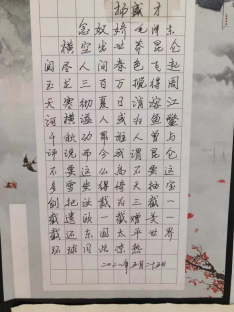 杨盛才
念奴娇 毛泽东
横空出世莽昆仑
阅尽人间春色飞起
玉龙三百万搅得周
天寒彻夏日消溶江
河横溢人或为鱼鳖
千秋功罪谁人曾与
评说而今我谓昆仑
不要这么高不要这
多雪安得倚天抽宝
剑把汝裁为三截一
截遗欧一截赠美一
截还东国太平世界
环球同此凉热
二〇二一年五月二十五日